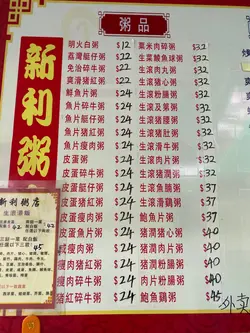 粥品
新利粥
明火白粥 $12
荔灣艇仔粥 $22
免治碎牛粥 $22
爽滑猪紅粥 $22
鮮魚片粥 $24
魚片碎牛粥 $24
魚片艇仔粥 $24
魚片猪紅粥 $24
魚片肉碎粥 $24
皮蛋粥 $24
皮蛋碎牛粥 $24
皮蛋艇仔粥 $24
皮蛋魚片粥 $24
皮蛋猪紅粥 $24
皮蛋瘦肉粥 $24
魚片瘦肉粥 $24
瘦肉粥 $24
瘦肉猪紅粥 $24
瘦肉碎牛粥 $24
猪紅碎牛粥 $24
粟米肉碎粥 $32
生菜鯪魚球粥 $32
生滾肉丸粥 $32
生滾猪心粥 $32
生滾粉腸粥 $32
生滾及第粥 $32
生滾猪腰粥 $32
生滾猪肚粥 $32
生滾滑牛粥 $32
生滾猪潤粥 $32
生滾魚腩粥 $37
生滾滑雞粥 $37
鮑魚片粥 $37
猪潤猪心粥 $40
猪潤粉腸粥 $40
肉片猪潤粥 $40
肉片粉腸粥 $40
鮑魚雞粥 $45
新利粥店
外賣